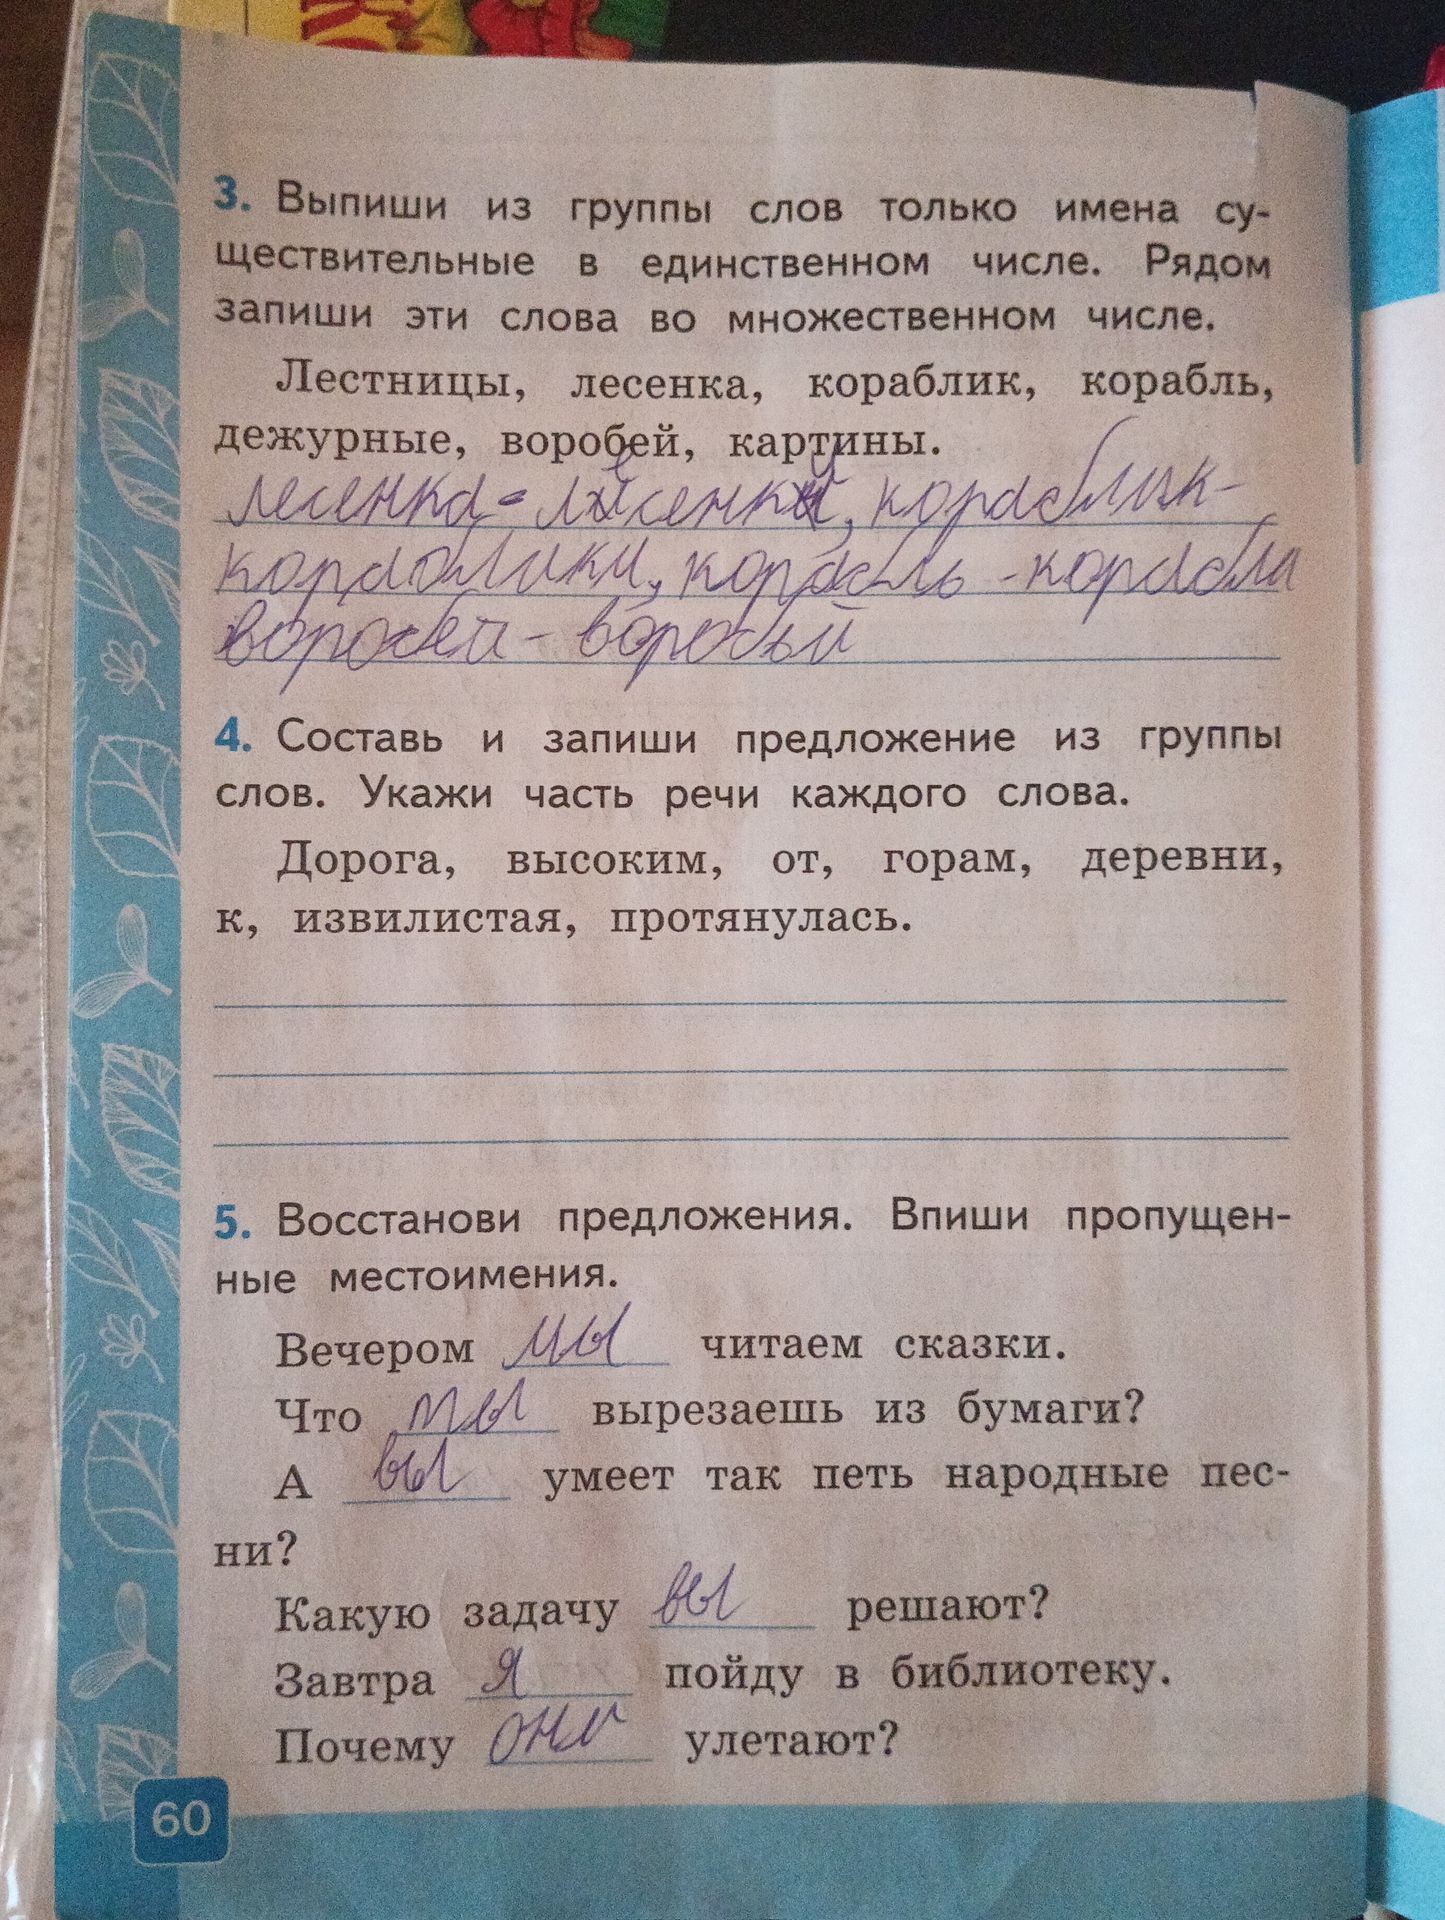 3. Выпиши из группы слов только имена су-
ществительные в единственном числе. Рядом
запиши эти слова во множественном числе.
Лестницы, лесенка, кораблик, корабль,
дежурные, воробей, картины.
лесенка - лесенки, кораблик -
кораблики, корабль - корабли
воробей - воробьи
4. Составь и запиши предложение из группы
слов. Укажи часть речи каждого слова.
Дорога, высоким, от, горам, деревни,
к, извилистая, протянулась.
5. Восстанови предложения. Впиши пропущен-
ные местоимения.
Вечером мы читаем сказки.
Что ты вырезаешь из бумаги?
А вы умеет так петь народные пес-
ни?
Какую задачу вы решают?
Завтра я пойду в библиотеку.
Почему они улетают?
60